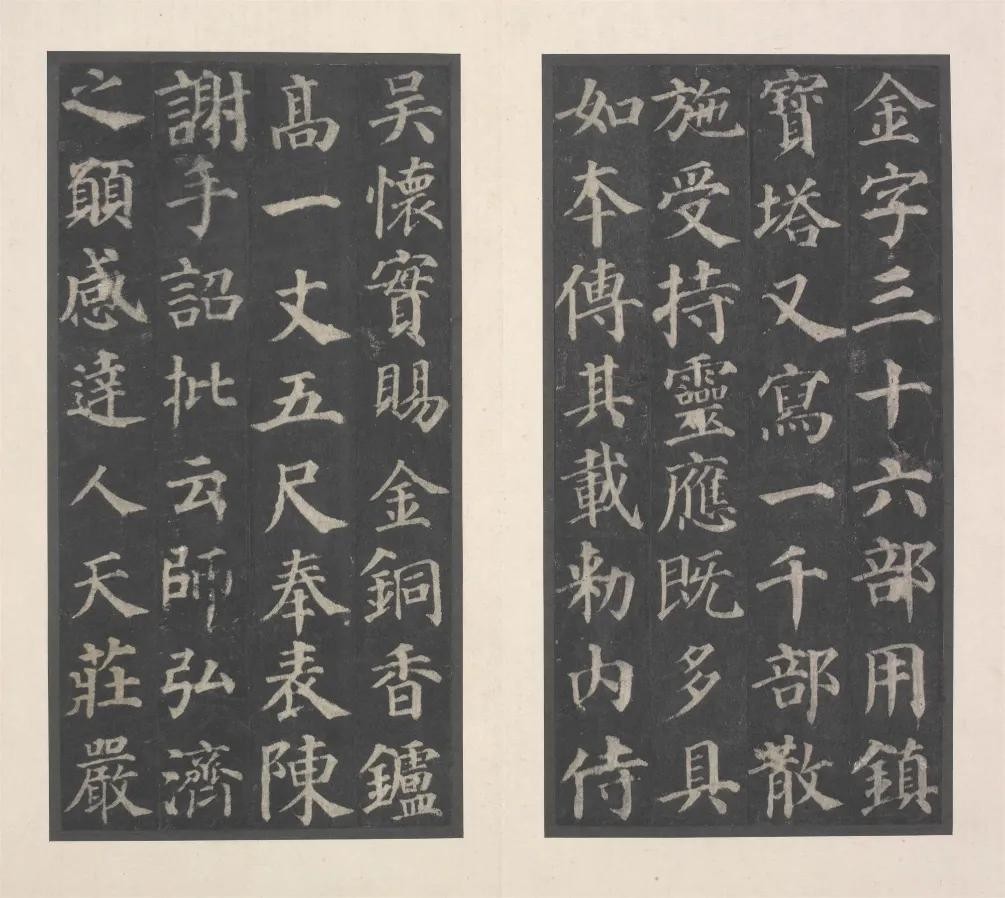 金字三十六部用鎮
寶塔又寫一千部散
施受持靈應既多具
如本傳其載勑内侍
吴懷實賜金銅香鑪
高一丈五尺奉表陳
謝手詔批云師弘濟
之願感達人天莊嚴